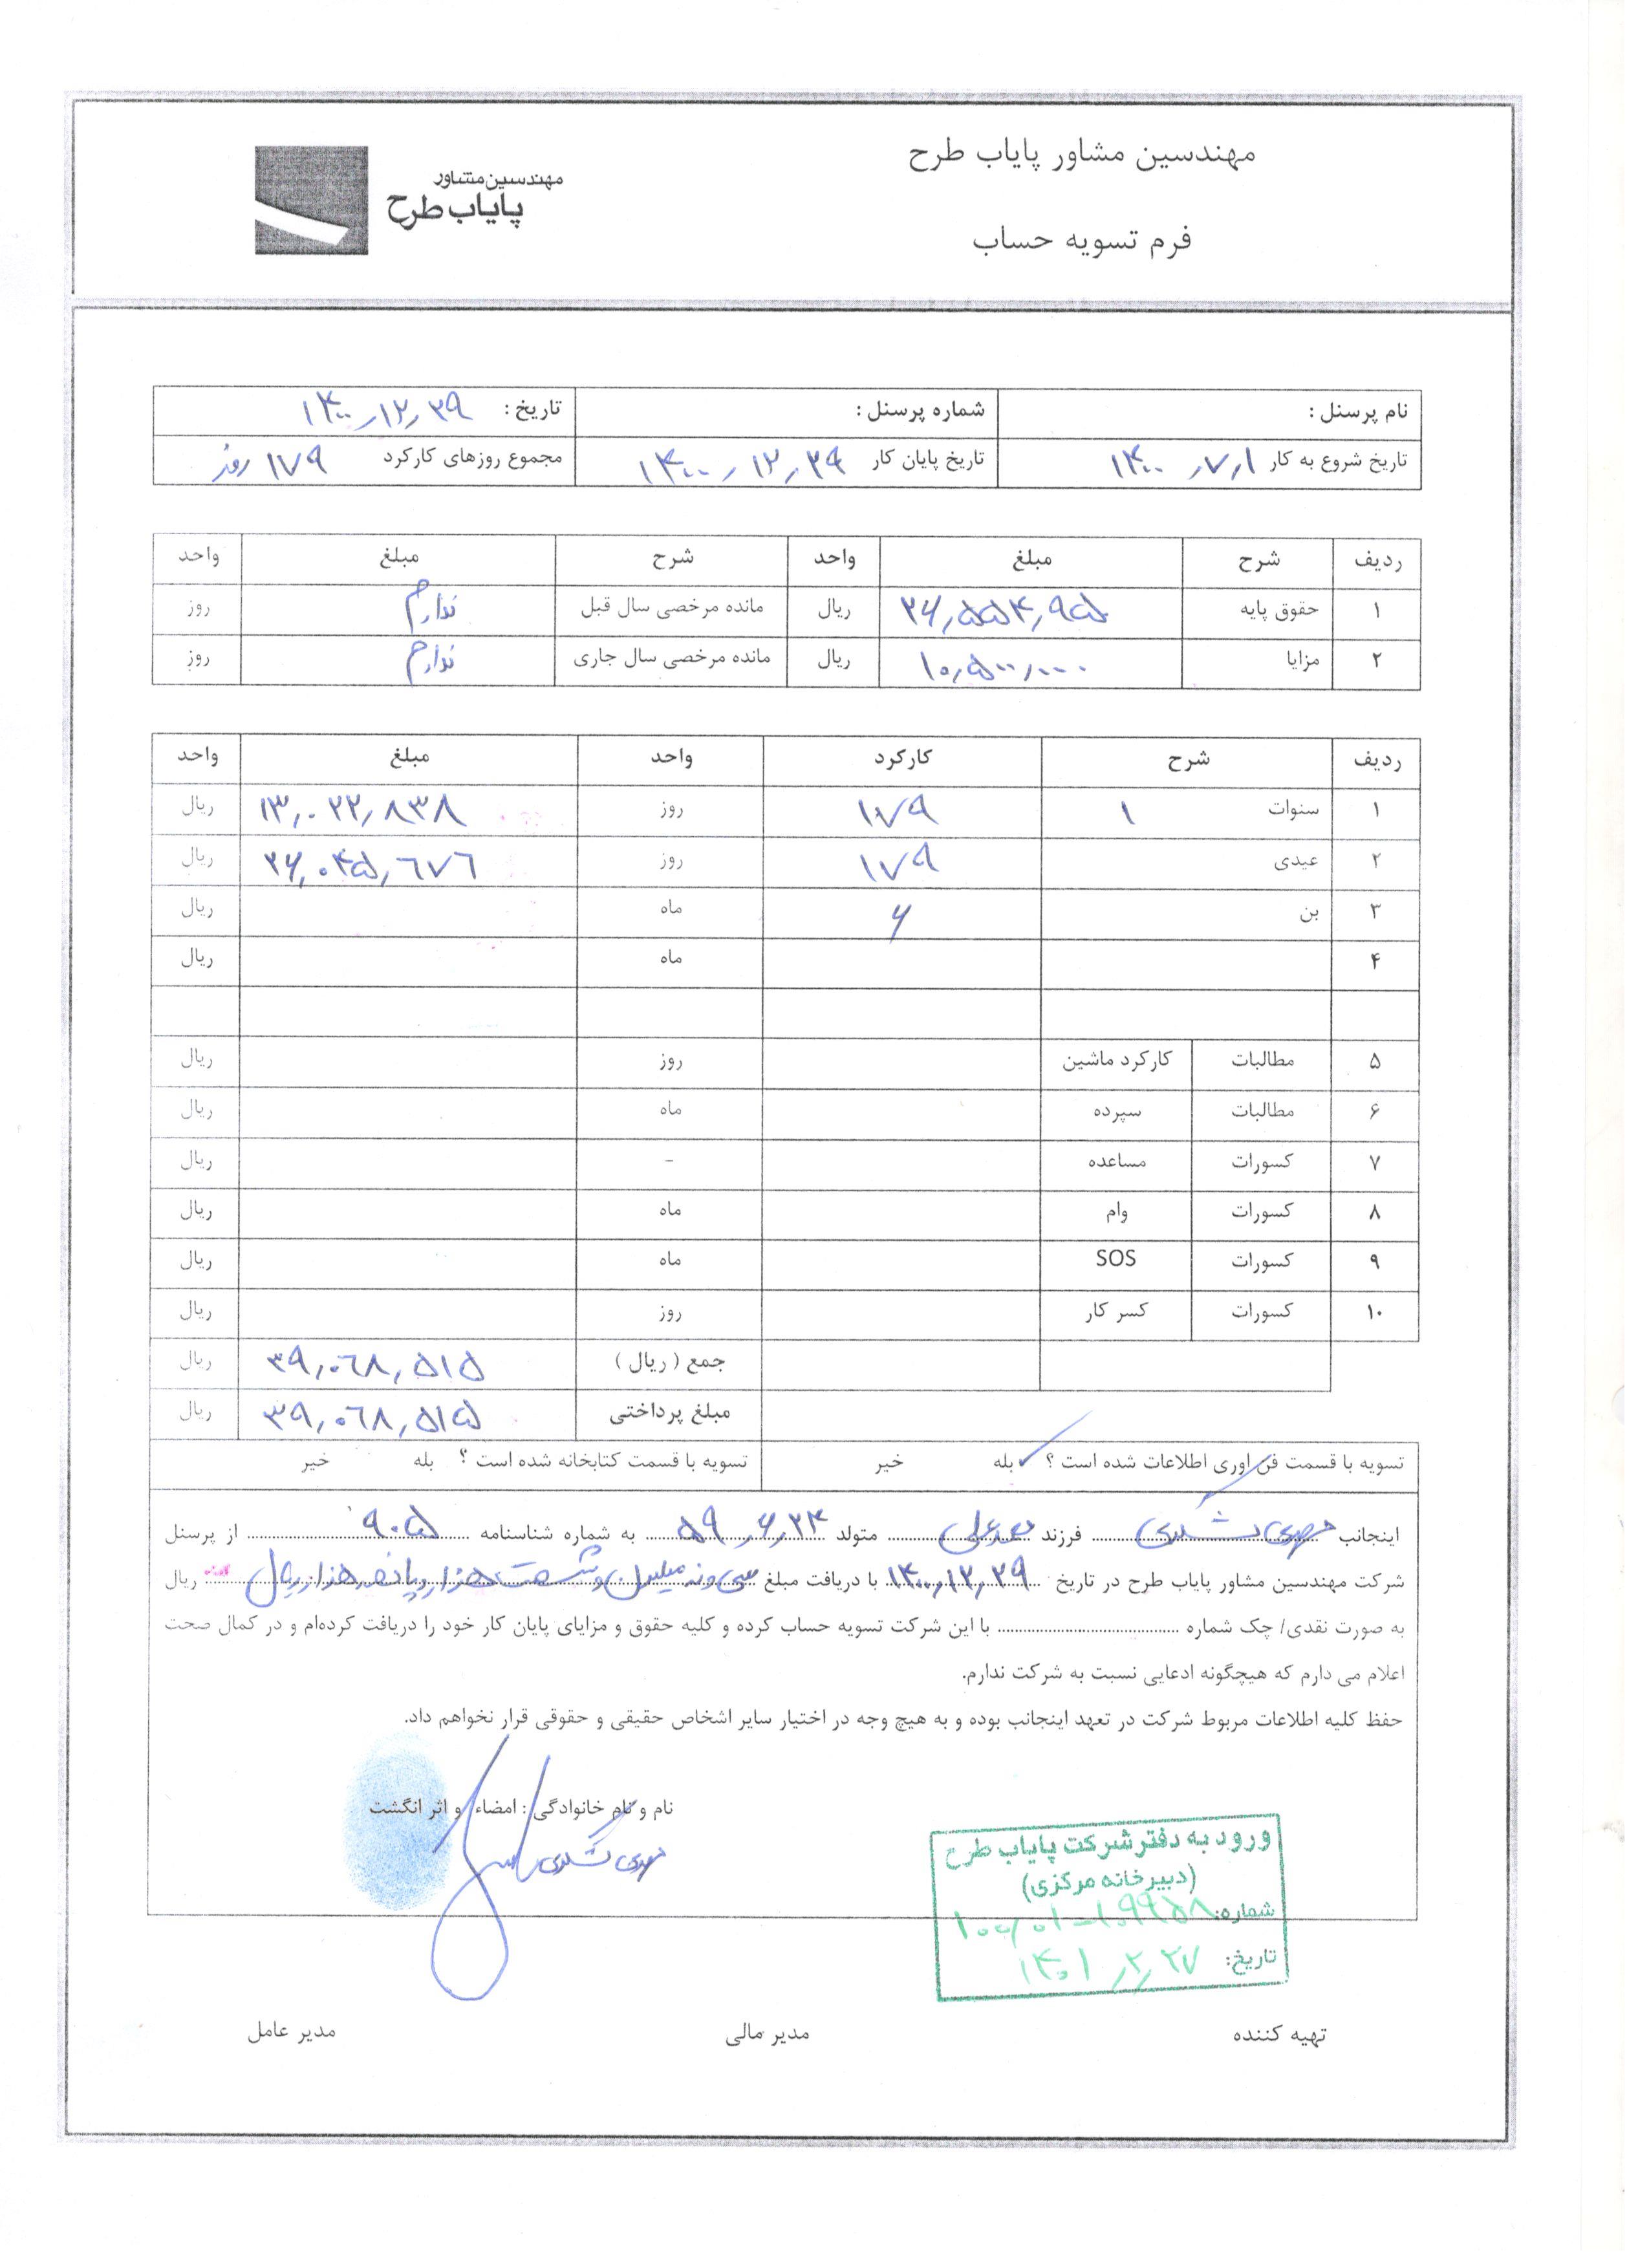 مهندسین مشاور پایاب طرح
مهندسین مشاور
پایاب طرح
فرم تسویه حساب
نام پرسنل : شماره پرسنل : تاریخ : ۱۴۰۰,۱۲,۲۹
تاریخ شروع به کار ۱۴۰۰,۷,۱ تاریخ پایان کار ۱۴۰۰,۱۲,۲۹ مجموع روزهای کارکرد ۱۷۹ روز
ردیف شرح مبلغ واحد شرح مبلغ واحد
۱ حقوق پایه ریال مانده مرخصی سال قبل ندارم روز
۲ مزایا ۱۰,۵۰۰,۰۰۰ ریال مانده مرخصی سال جاری ندارم روز
ردیف شرح کارکرد واحد مبلغ واحد
۱ سنوات ۱ ۱۷۹ روز ۱۳,۰۲۲,۸۳۸ ریال
۲ عیدی ۱۷۹ روز ۲۶,۰۴۵,۶۷۶ ریال
۳ بن ۶ ماه ریال
۴ ماه ریال
۵ مطالبات کارکرد ماشین روز ریال
۶ مطالبات سپرده ماه ریال
۷ کسورات مساعده - ریال
۸ کسورات وام ماه ریال
۹ کسورات SOS ماه ریال
۱۰ کسورات کسر کار روز ریال
جمع ( ریال ) ۳۹,۰۶۸,۵۱۵ ریال
مبلغ پرداختی ۳۹,۰۶۸,۵۱۵ ریال
تسویه با قسمت فن اوری اطلاعات شده است ؟ بله خیر تسویه با قسمت کتابخانه شده است ؟ بله خیر
اینجانب مهدی فرزند متولد ۵۹,۶,۲۳ به شماره شناسنامه ۹۰۵ از پرسنل
شرکت مهندسین مشاور پایاب طرح در تاریخ ۱۴۰۰,۱۲,۲۹ با دریافت مبلغ سی و نه میلیون و شصت هزار و پانصد هزار ریال ریال
به صورت نقدی/ چک شماره با این شرکت تسویه حساب کرده و کلیه حقوق و مزایای پایان کار خود را دریافت کرده‌ام و در کمال صحت
اعلام می دارم که هیچگونه ادعایی نسبت به شرکت ندارم.
حفظ کلیه اطلاعات مربوط شرکت در تعهد اینجانب بوده و به هیچ وجه در اختیار سایر اشخاص حقیقی و حقوقی قرار نخواهم داد.
نام و نام خانوادگی : امضاء و اثر انگشت
مهدی
ورود به دفتر شرکت پایاب طرح
(دبیرخانه مرکزی)
شماره:
تاریخ: ۱۴۰۱,۲,۲۷
تهیه کننده مدیر مالی مدیر عامل